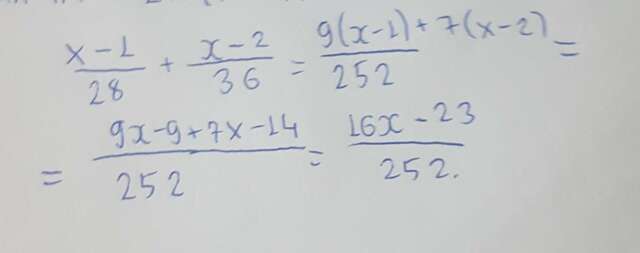 (x-1)/28 + (x-2)/36 = (9(x-1)+7(x-2))/252 =
= (9x-9+7x-14)/252 = (16x-23)/252.